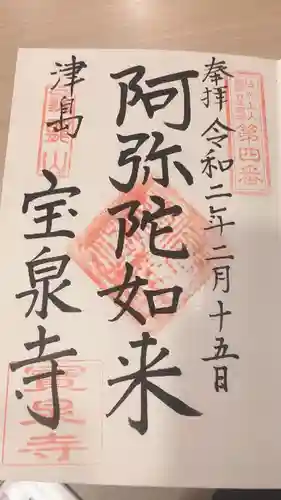 第四番
奉拝 令和二年二月十五日
阿弥陀如来
津島
宝泉寺
寶泉寺